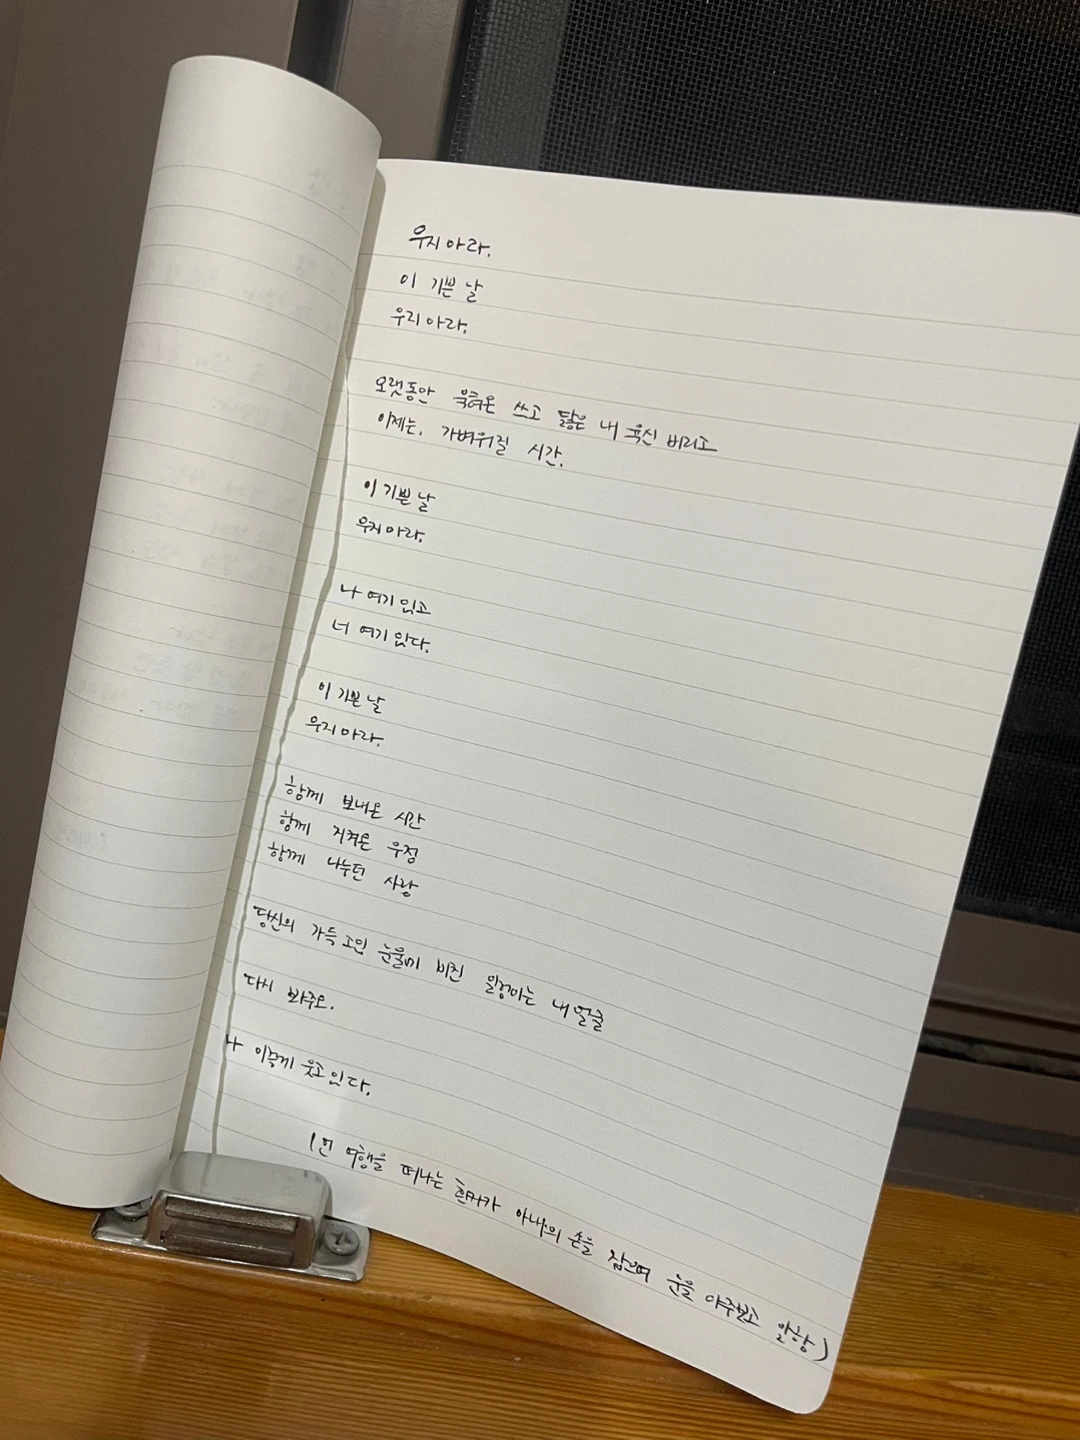 우지 마라.
이 기쁜 날
우지 마라.
오랫동안 묵혀온 쓰고 닳은 내 육신 버리고
이제는, 가벼워질 시간.
이 기쁜 날
우지 마라.
나 여기 있고
너 여기 있다.
이 기쁜 날
우지 마라.
함께 보내온 시간
함께 지켜온 우정
함께 나누던 사랑
당신의 가득 고인 눈물에 비친 일렁이는 내 얼굴
다시 봐주오.
나 이렇게 웃고 있다.
(먼 여행을 떠나는 환자가 아내의 손을 잡으며 눈을 마주보고 말함)